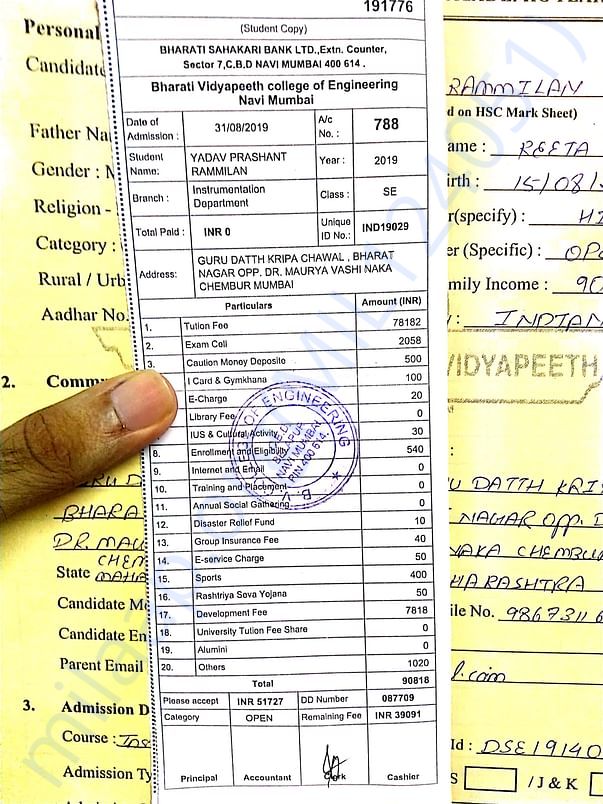 191776
(Student Copy)
BHARATI SAHAKARI BANK LTD.,Extn. Counter,
Sector 7,C.B.D NAVI MUMBAI 400 614 .
Bharati Vidyapeeth college of Engineering
Navi Mumbai
Date of Admission : 31/08/2019 A/c No. : 788
Student Name: YADAV PRASHANT RAMMILAN Year : 2019
Branch : Instrumentation Department Class : SE
Total Paid : INR 0 Unique ID No.: IND19029
Address: GURU DATTH KRIPA CHAWAL , BHARAT
NAGAR OPP. DR. MAURYA VASHI NAKA
CHEMBUR MUMBAI
Particulars Amount (INR)
1. Tution Fee 78182
2. Exam Cell 2058
3. Caution Money Deposite 500
I Card & Gymkhana 100
E-Charge 20
Library Fee 0
IUS & Cultural Activity 30
8. Enrollment and Eligibility 540
9. Internet and Email 0
10. Training and Placement 0
11. Annual Social Gathering 0
12. Disaster Relief Fund 10
13. Group Insurance Fee 40
14. E-service Charge 50
15. Sports 400
16. Rashtriya Seva Yojana 50
17. Development Fee 7818
18. University Tution Fee Share 0
19. Alumini 0
20. Others 1020
Total 90818
Please accept INR 51727 DD Number 087709
Category OPEN Remaining Fee INR 39091
Principal Accountant Clerk Cashier
B.V. COLLEGE OF ENGINEERING
C.B.D.
BELAPUR
NAVI MUMBAI
PIN 400 614.
Personal
Candidate
Father Na
Gender : M
Religion -
Category :
Rural / Urb
Aadhar No.
2. Comm
BHARA
DR. MAU
CHEM
State MAHA
Candidate Mo
Candidate En
Parent Email
3. Admission D
Course : Ins
Admission Ty
RAMMILAN
d on HSC Mark Sheet)
ame : REETA
irth : 15/08/
r(specify) : HI
er (Specific) : OPE
mily Income : 90
: INDIAN
VIDYAPEETH
U DATTH KRI
NAGAR OPP. D
NAKA CHEMBU
HARASHTRA
ile No. 98673116
l.com
Id : DSE19140
S / J & K